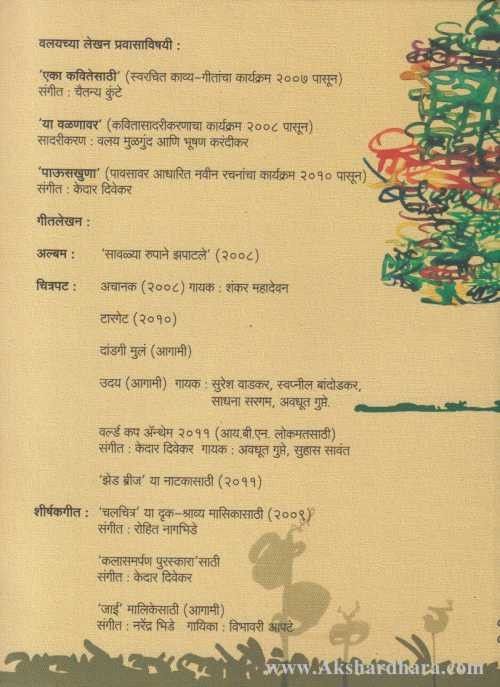 वलयच्या लेखन प्रवासाविषयी :
'एका कवितेसाठी' (स्वरचित काव्य-गीतांचा कार्यक्रम २००७ पासून)
संगीत : चैतन्य कुंटे
'या वळणावर' (कवितासादरीकरणाचा कार्यक्रम २००८ पासून)
सादरीकरण : वलय मुळगुंद आणि भूषण करंदीकर
'पाऊसखुणा' (पावसावर आधारित नवीन रचनांचा कार्यक्रम २०१० पासून)
संगीत : केदार दिवेकर
गीतलेखन :
अल्बम : 'सावळ्या रुपाने झपाटले' (२००८)
चित्रपट : अचानक (२००८) गायक : शंकर महादेवन
टारगेट (२०१०)
दांडगी मुलं (आगामी)
उदय (आगामी) गायक : सुरेश वाडकर, स्वप्नील बांदोडकर,
साधना सरगम, अवधूत गुप्ते.
वर्ल्ड कप ॲन्थेम २०११ (आय.बी.एन. लोकमतसाठी)
संगीत : केदार दिवेकर गायक : अवधूत गुप्ते, सुहास सावंत
'झेड ब्रीज' या नाटकासाठी (२०११)
शीर्षकगीत : 'चलचित्र' या दृक-श्राव्य मासिकासाठी (२००९)
संगीत : रोहित नागभिडे
'कलासमर्पण पुरस्कारा'साठी
संगीत : केदार दिवेकर
'जाई' मालिकेसाठी (आगामी)
संगीत : नरेंद्र भिडे गायिका : विभावरी आपटे
www.Akshardhara.com